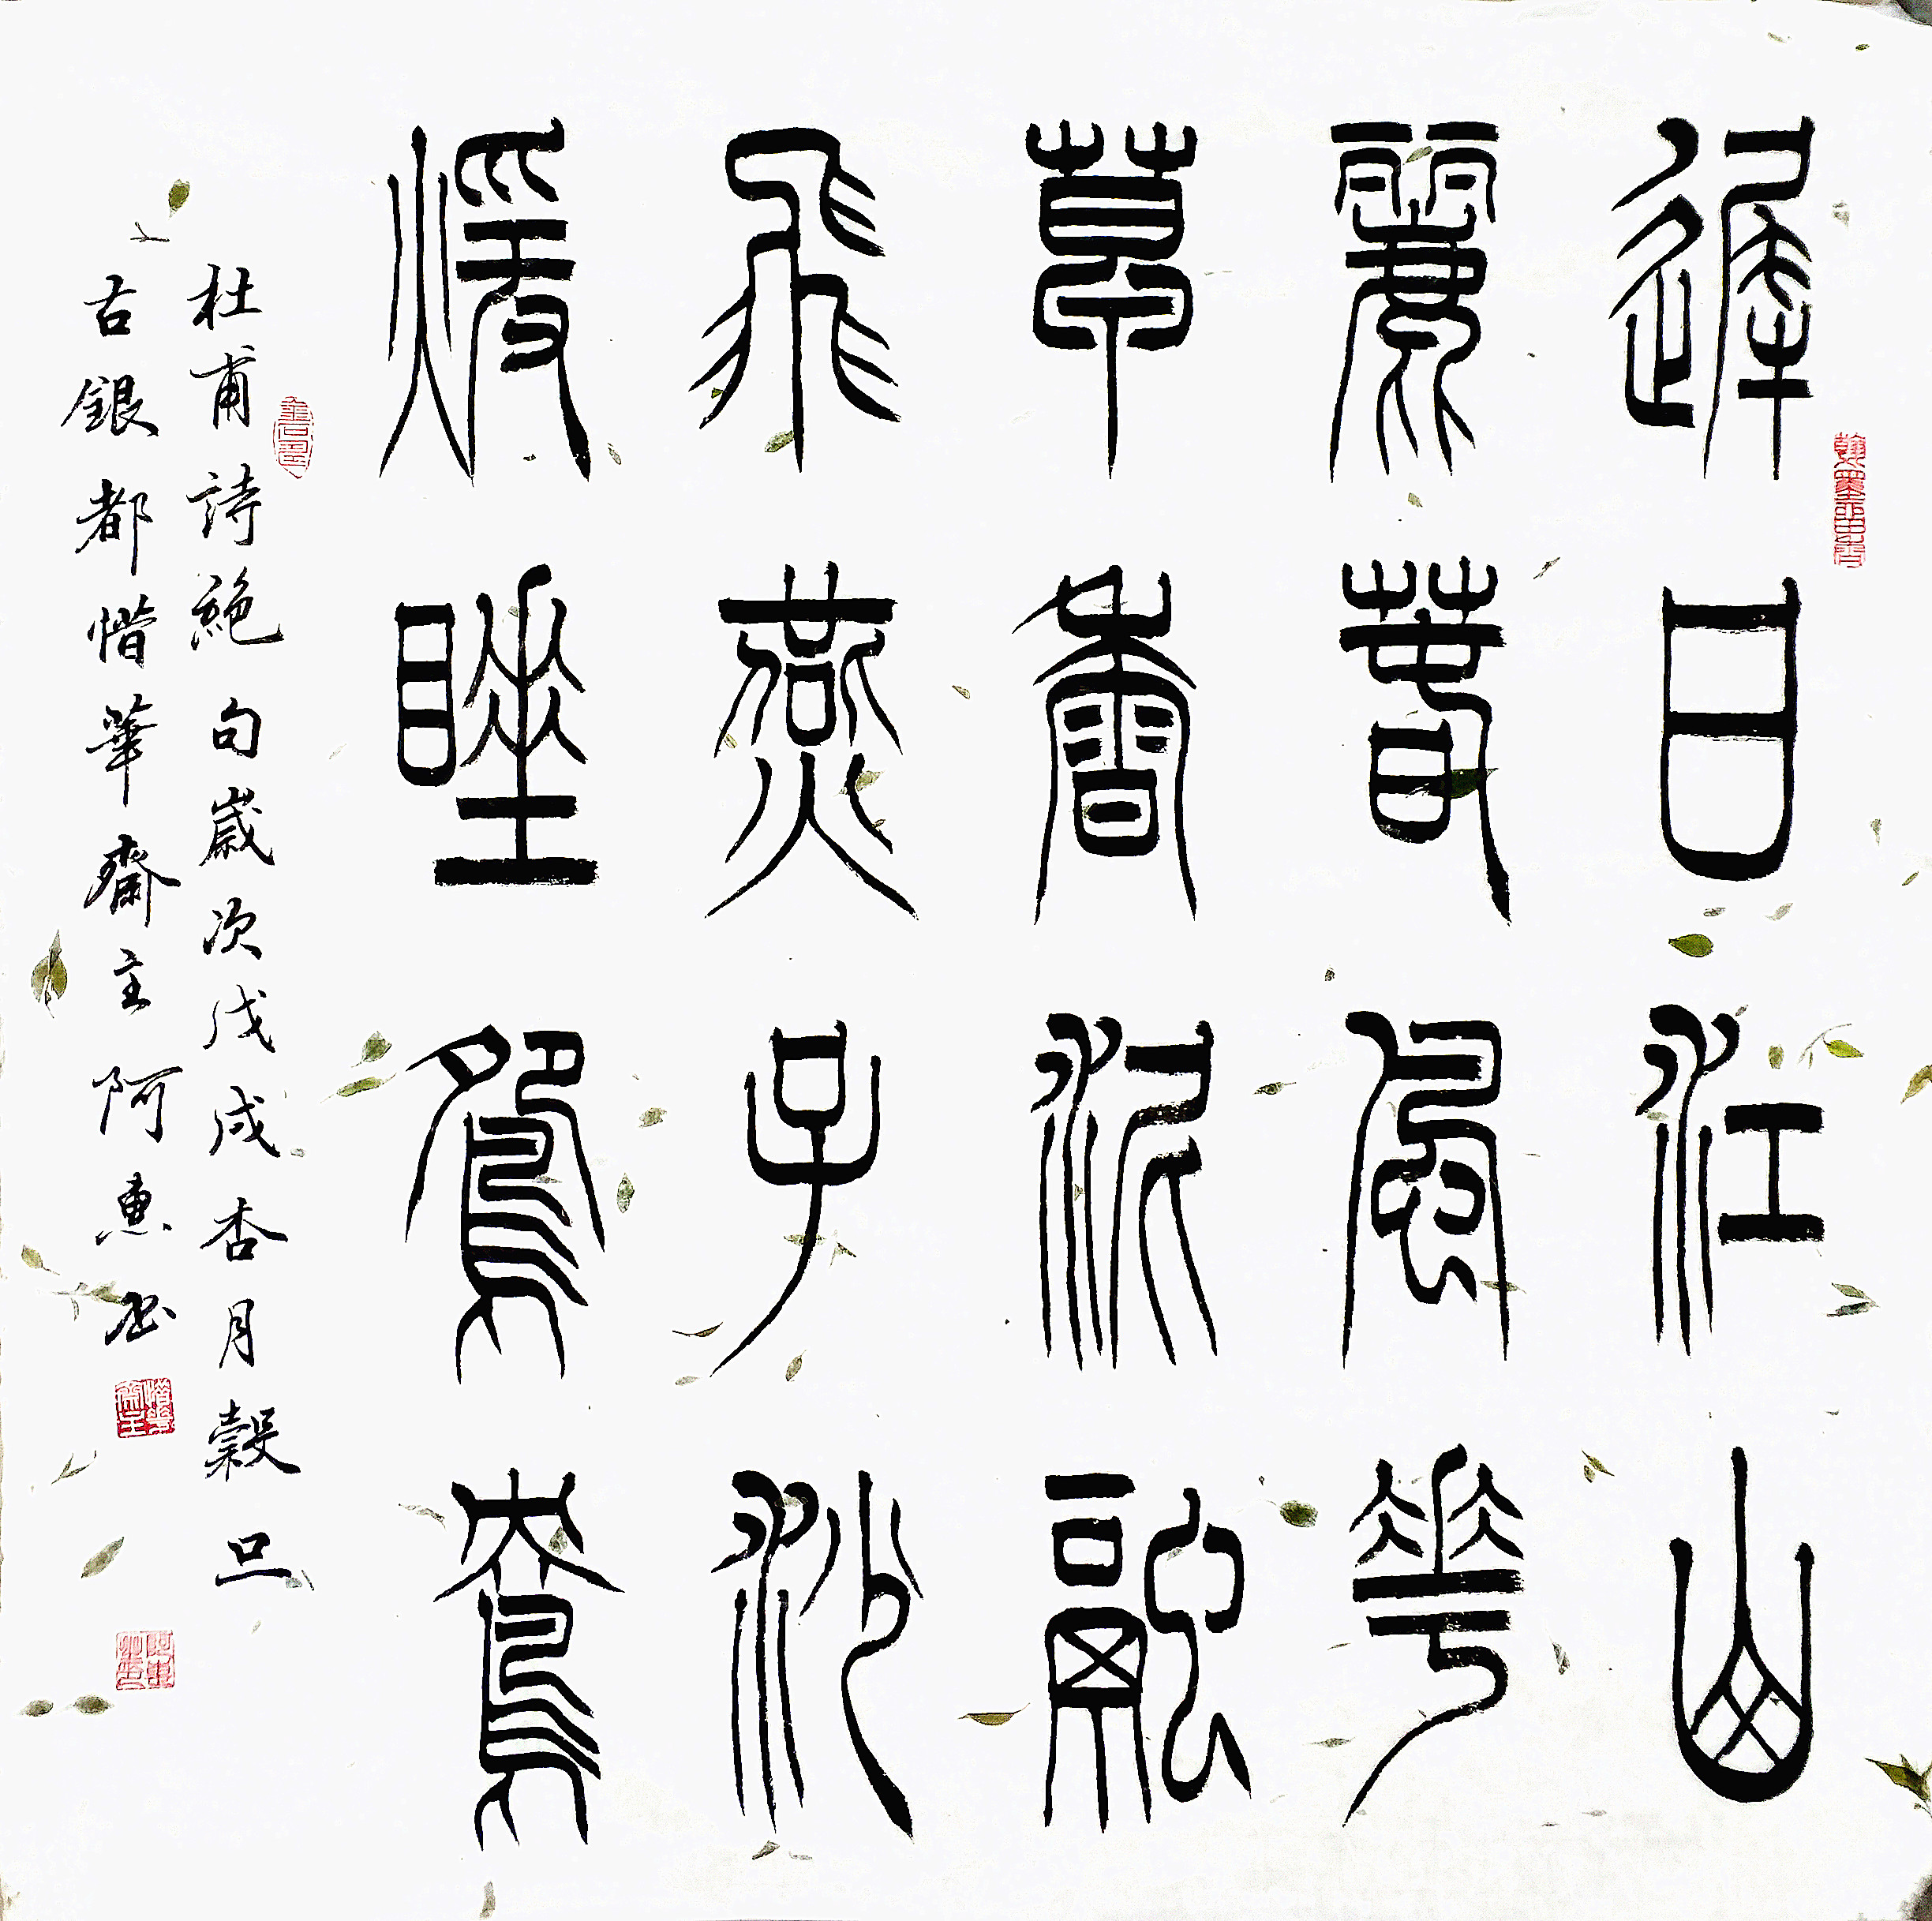 遲日江山
麗春風華
草香泥融
飛燕子沙
煖睡鴛鴦
杜甫詩絕句歲次戊戌杏月穀旦
古銀都惜筆齋主阿惠书